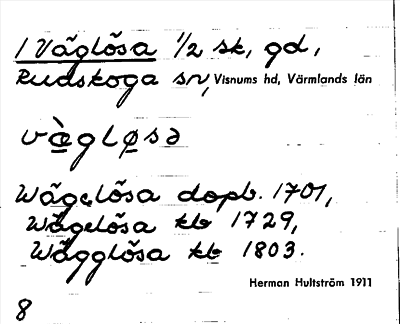 1 Väglösa 1/2 sk, gd,
Rudskoga sn, Visnums hd, Värmlands län
væ̀gløsa
Wägelösa dopb. 1701,
Wägelösa kb 1729,
Wägglösa kb 1803.
Herman Hultström 1911
8